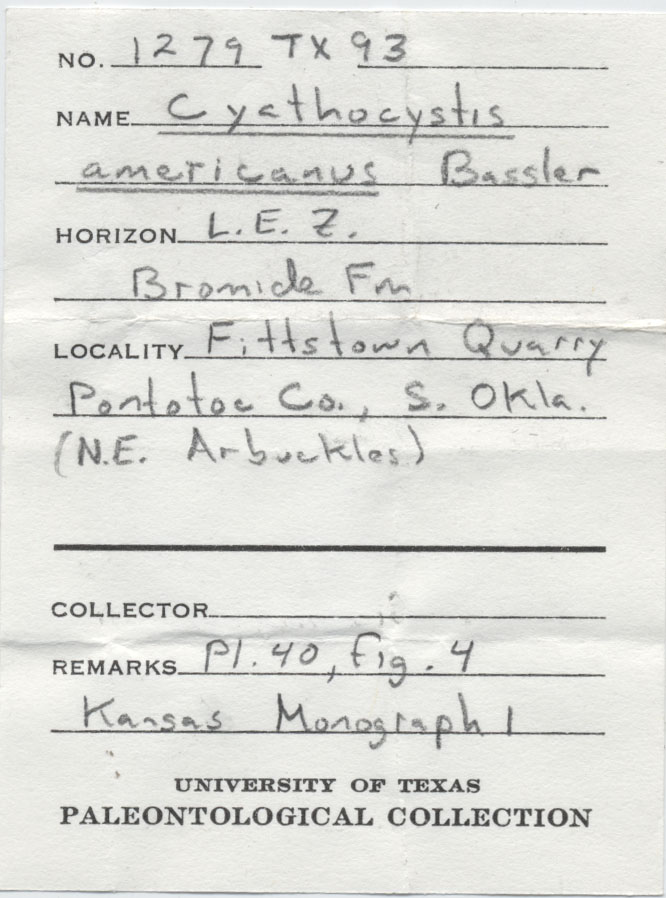 NO. 1279 TX 93
NAME Cyathocystis
americanus Bassler
HORIZON L.E.Z.
Bromide Fm
LOCALITY Fittstown Quarry
Pontotoc Co., S. Okla.
(N.E. Arbuckles)
COLLECTOR
REMARKS Pl. 40, Fig. 4
Kansas Monograph 1
UNIVERSITY OF TEXAS
PALEONTOLOGICAL COLLECTION